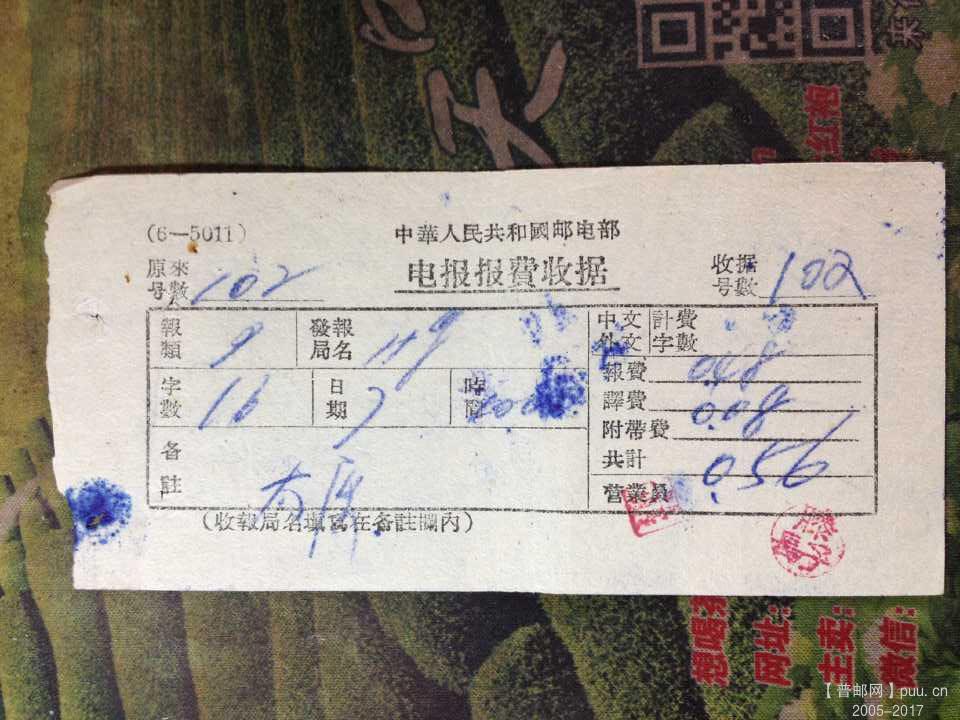 (6—5011)
中華人民共和國邮电部
电报报費收据
原來号數 102
收据号數 102
報類 9
發報局名 119
中文外文 計費字數
字數 16
日期 7
時間
報費 0.48
譯費 0.08
附帶費
共計 0.56
营業員
备註
(收報局名填寫在备註欄內)
天
红袍
来
想喝
网址:
主卖:
微信:
【普邮网】puu.cn
2005-2017